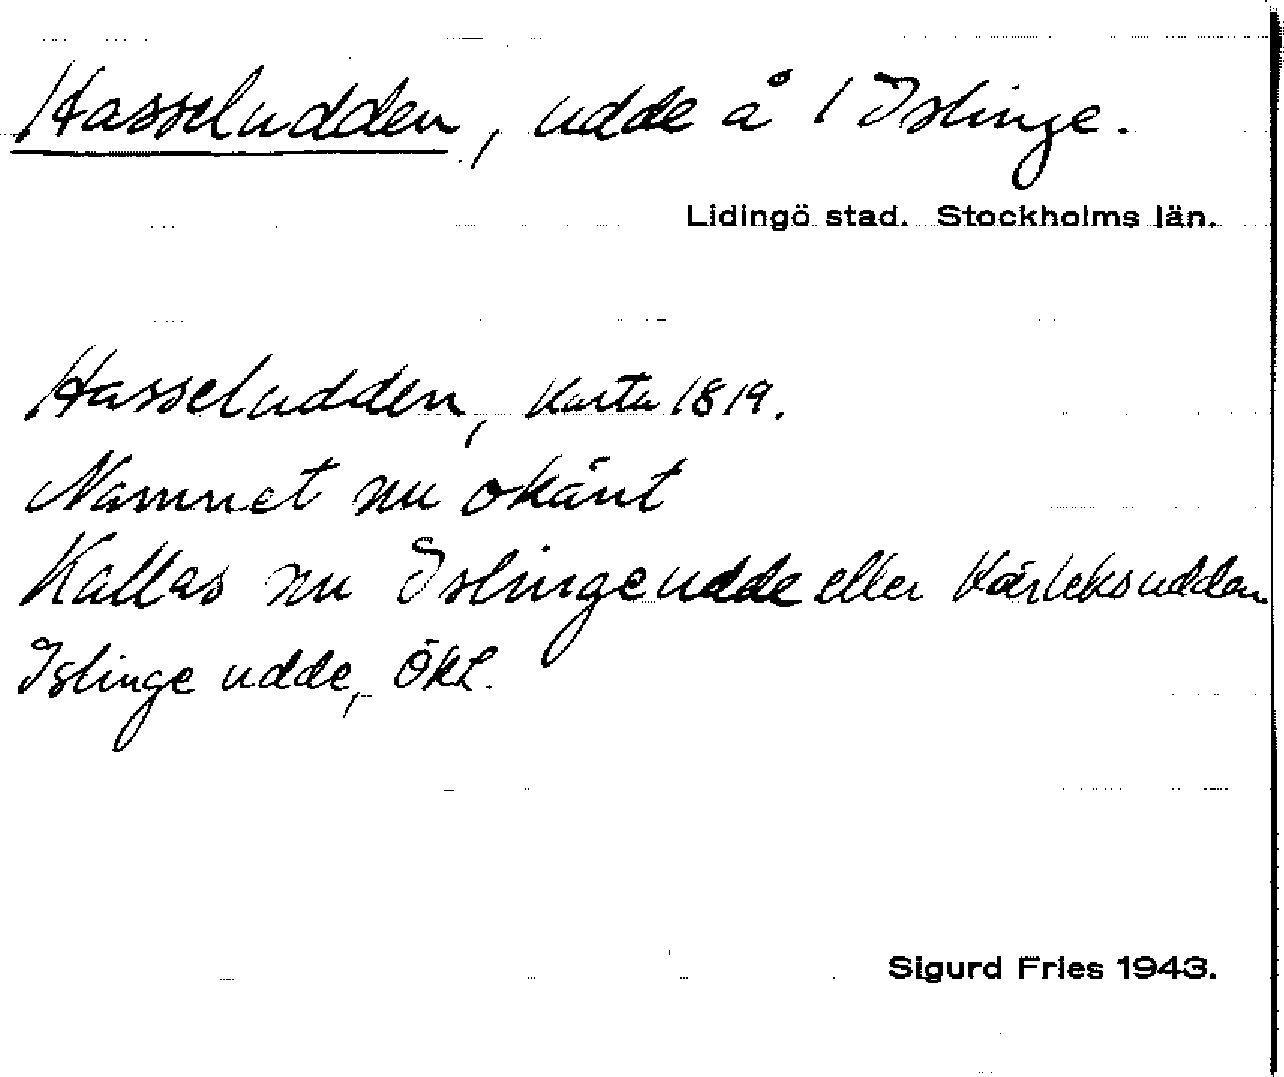 Hasseludden, udde å 1 Islinge.
Lidingö stad. Stockholms län.
Hasseludden, karta 1819.
Namnet nu okänt
Kallas nu Islinge udde eller Kärleksudden
Islinge udde, ÖKL.
Sigurd Fries 1943.